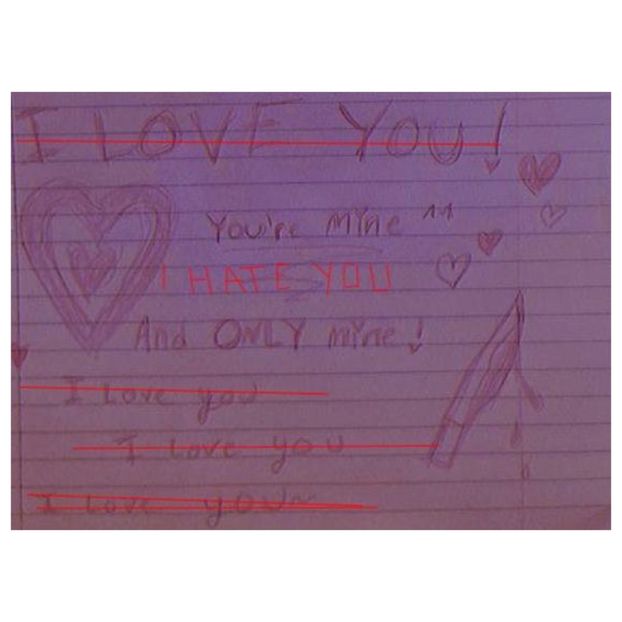 I LOVE YOU!
You're Mine ^^
I HATE YOU
And ONLY mine!
I Love you
I Love you
I Love you~